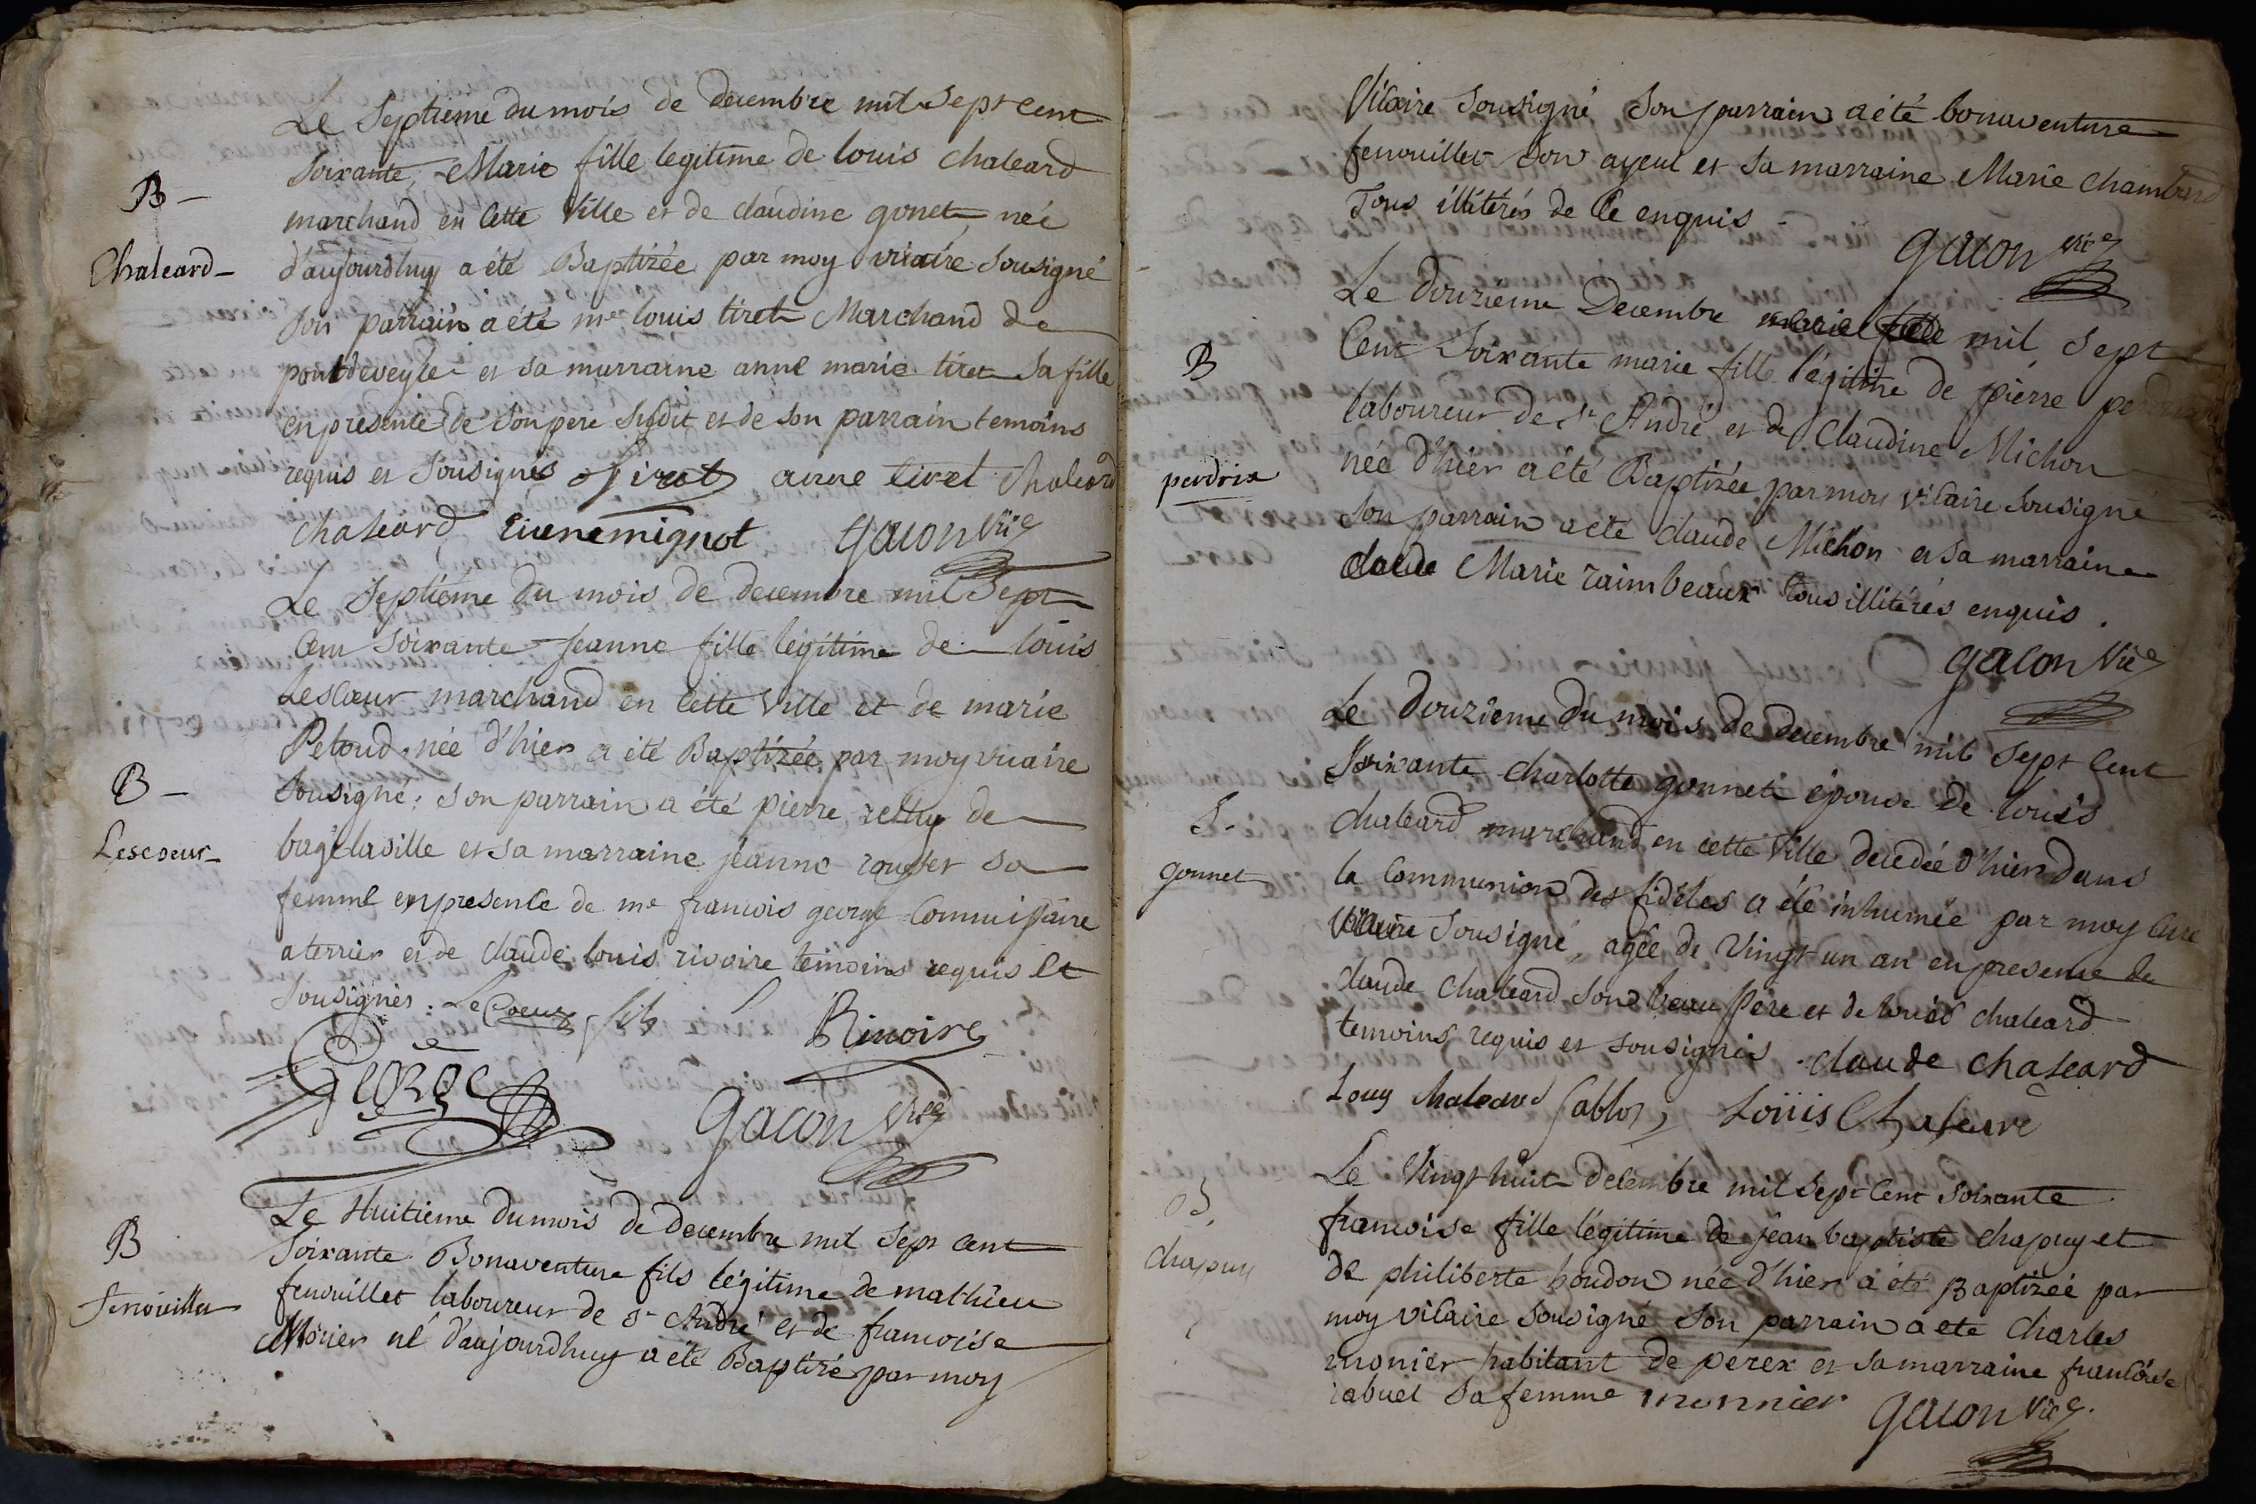 Le septieme du mois de decembre mil sept cent
soixante, Marie fille legitime de louis chaleard
B -
marchand en cette ville et de claudine gonet née
Chaleard -
d'aujourdhuy a été Baptizée par moy vicaire sousigné
son parrain a été me louis tiret Marchand de
pontdeveyle et sa marraine anne marie tiret sa fille
en presence de son pere susdit et de son parrain temoins
requis et sousignés tiret anne tiret Chaleard
chaleard mignot gacon vic
Le septiéme du mois de decembre mil sept
cent soixante Jeanne fille légitime de louis
Lescoeur marchand en cette ville et de marie
Petoud née d'hier a été Baptizée par moy vicaire
B -
sousigné : son parrain a été pierre de
Lescoeur -
bagé la ville et sa marraine jeanne sa
femme en presence de me francois george commissaire
a terrier et de claude louis rivoire temoins requis et
sousignés : Le Coeur fils Rivoire
George
gacon vic
Le Huitieme du mois de decembre mil sept cent
B
soixante Bonaventure fils légitime de mathieu
fenouillet
fenouillet laboureur de st André et de francoise
Morier né d'aujourdhuy a été Baptizé par moy
vicaire sousigné son parrain a été bonaventure
fenouillet son ayeul et sa marraine Marie chambard
Tous illitérés de ce enquis -
gacon vic
Le douzieme Decembre marie fille mil sept
B
cent soixante marie fille légitime de pierre perdrix
laboureur de st André et de claudine Michon
perdrix
née d'hier a été Baptizée par moy vicaire sousigné
son parrain a été claude Michon et sa marraine
claude Marie raimbeaux tous illitérés enquis .
gacon vic
Le douzieme du mois de decembre mil sept cent
soixante charlotte gonnet épouse de louis
S -
chaleard marchand en cette ville decedée d'hier dans
gonnet
la communion des fidéles a été inhumée par moy curé
vicaire sousigné, agée de vingt un an en presence de
claude chaleard son beau pere et de louis chaleard
temoins requis et sousignés . claude chaleard
Louy chaleard Louis Chaleard
Le vingt huit decembre mil sept cent soixante
B.
francoise fille légitime de jean baptiste chapuy et
chapuy
de philiberte houdon née d'hier a été Baptizeé par
moy vicaire sousigné son parrain a ete charles
monier habitant de pérex et sa marraine francoise
rabuel sa femme monnier gacon vic.